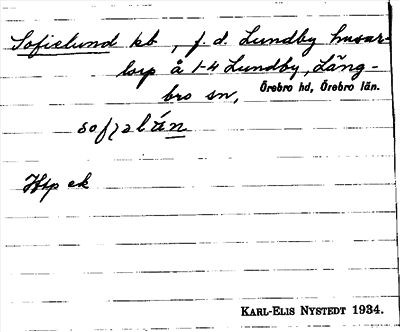 Sofielund kb, f.d. Lundby husar-
torp å 1-4 Lundby, Läng-
bro sn, Örebro hd, Örebro län.
Htp ek
KARL-ELIS NYSTEDT 1934.